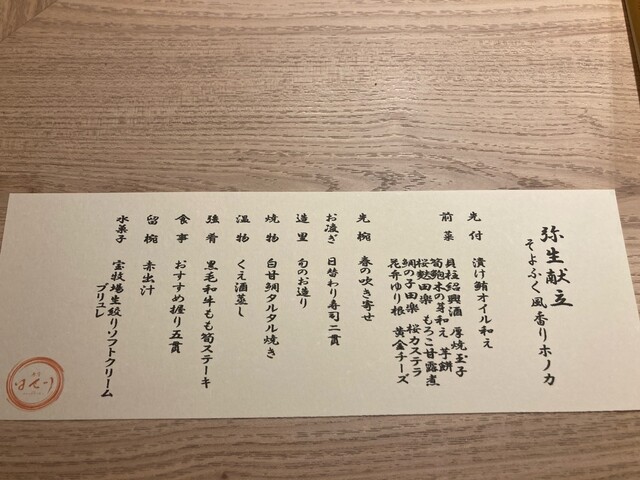 弥生献立
そよふく風香りホノカ
先付 漬け鮪オイル和え
前菜 貝柱紹興酒 厚焼玉子
筍鮑木の芽和え 芋餅
桜麩田楽 もろこ甘露煮
鯛の子田楽 桜カステラ
花弁ゆり根 黄金チーズ
先椀 春の吹き寄せ
お凌ぎ 日替わり寿司二貫
造里 旬のお造り
焼物 白甘鯛タルタル焼き
温物 くえ酒蒸し
強肴 黒毛和牛もも筍ステーキ
食事 おすすめ握り五貫
留椀 赤出汁
水菓子 宝牧場生絞りソフトクリーム
ブリュレ